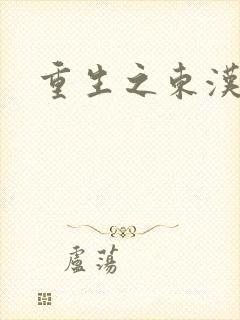 重生之東漢
盧蕩